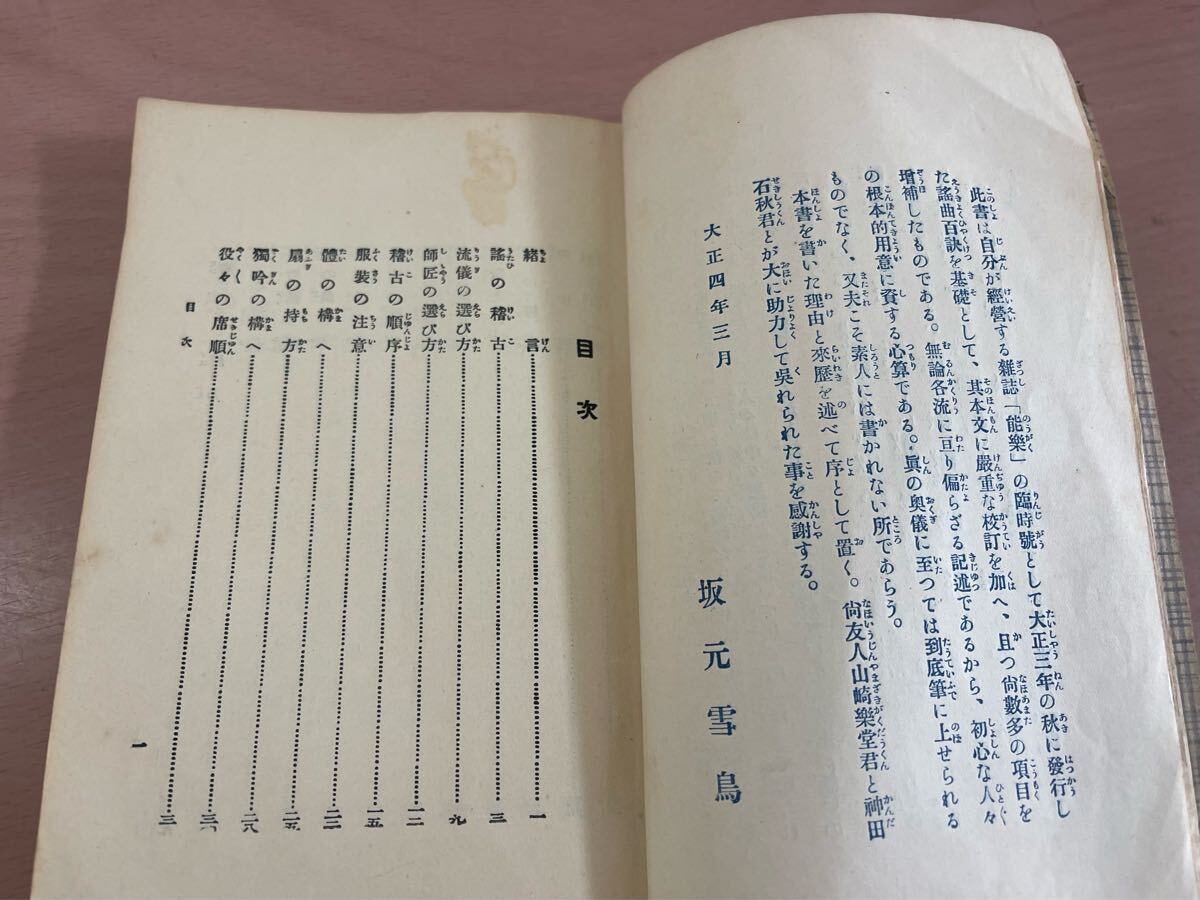 此書は自分が經營する雜誌「能樂」の臨時號として大正三年の秋に發行し
た謠曲百訣を基礎として、其本文に嚴重な校訂を加へ、且つ尙數多の項目を
增補したものである。無論各流に亘り偏らざる記述であるから、初心な人々
の根本的用意に資する心算である。眞の奧儀に至つては到底筆に上せられる
ものでなく、又夫こそ素人には書かれない所であらう。
本書を書いた理由と來歷を述べて序として置く。尙友人山崎樂堂君と神田
石秋君とが大に助力して吳れられた事を感謝する。
大正四年三月
坂元雪鳥
目次
緖言……一
謠の稽古……三
流儀の選び方……九
師匠の選び方……一二
稽古の順序……一五
服裝の注意……二二
體の構へ……二五
扇の持方……二八
獨吟の構へ
役々の席順
目次
一